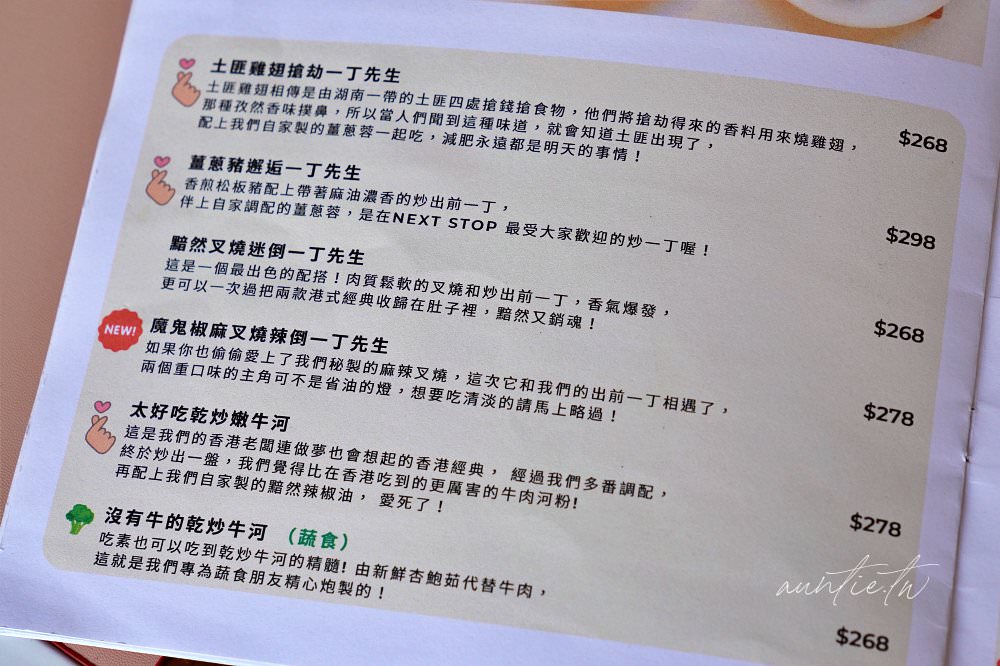 土匪雞翅搶劫一丁先生
土匪雞翅相傳是由湖南一帶的土匪四處搶錢搶食物，他們將搶劫得來的香料用來燒雞翅，
那種孜然香味撲鼻，所以當人們聞到這種味道，就會知道土匪出現了，
配上我們自家製的薑蔥蓉一起吃，減肥永遠都是明天的事情！
$268
薑蔥豬邂逅一丁先生
香煎松板豬配上帶著麻油濃香的炒出前一丁，
伴上自家調配的薑蔥蓉，是在NEXT STOP 最受大家歡迎的炒一丁喔！
$298
黯然叉燒迷倒一丁先生
這是一個最出色的配搭！肉質鬆軟的叉燒和炒出前一丁，香氣爆發，
更可以一次過把兩款港式經典收歸在肚子裡，黯然又銷魂！
$268
NEW!
魔鬼椒麻叉燒辣倒一丁先生
如果你也偷偷愛上了我們秘製的麻辣叉燒，這次它和我們的出前一丁相遇了，
兩個重口味的主角可不是省油的燈，想要吃清淡的請馬上略過！
$278
太好吃乾炒嫩牛河
這是我們的香港老闆連做夢也會想起的香港經典， 經過我們多番調配，
終於炒出一盤，我們覺得比在香港吃到的更厲害的牛肉河粉!
再配上我們自家製的黯然辣椒油， 愛死了！
$278
沒有牛的乾炒牛河 （蔬食）
吃素也可以吃到乾炒牛河的精髓! 由新鮮杏鮑茹代替牛肉，
這就是我們專為蔬食朋友精心炮製的！
$268
auntie.tw